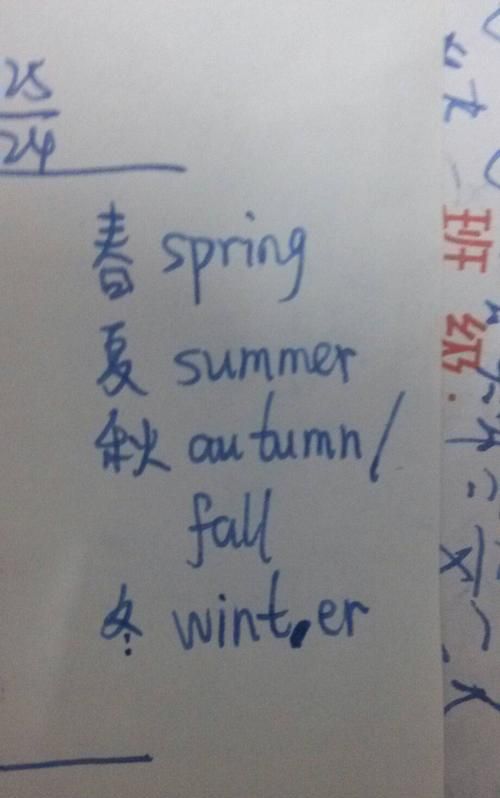 25
24
春 spring
夏 summer
秋 autumn/
fall
冬 winter
班级: